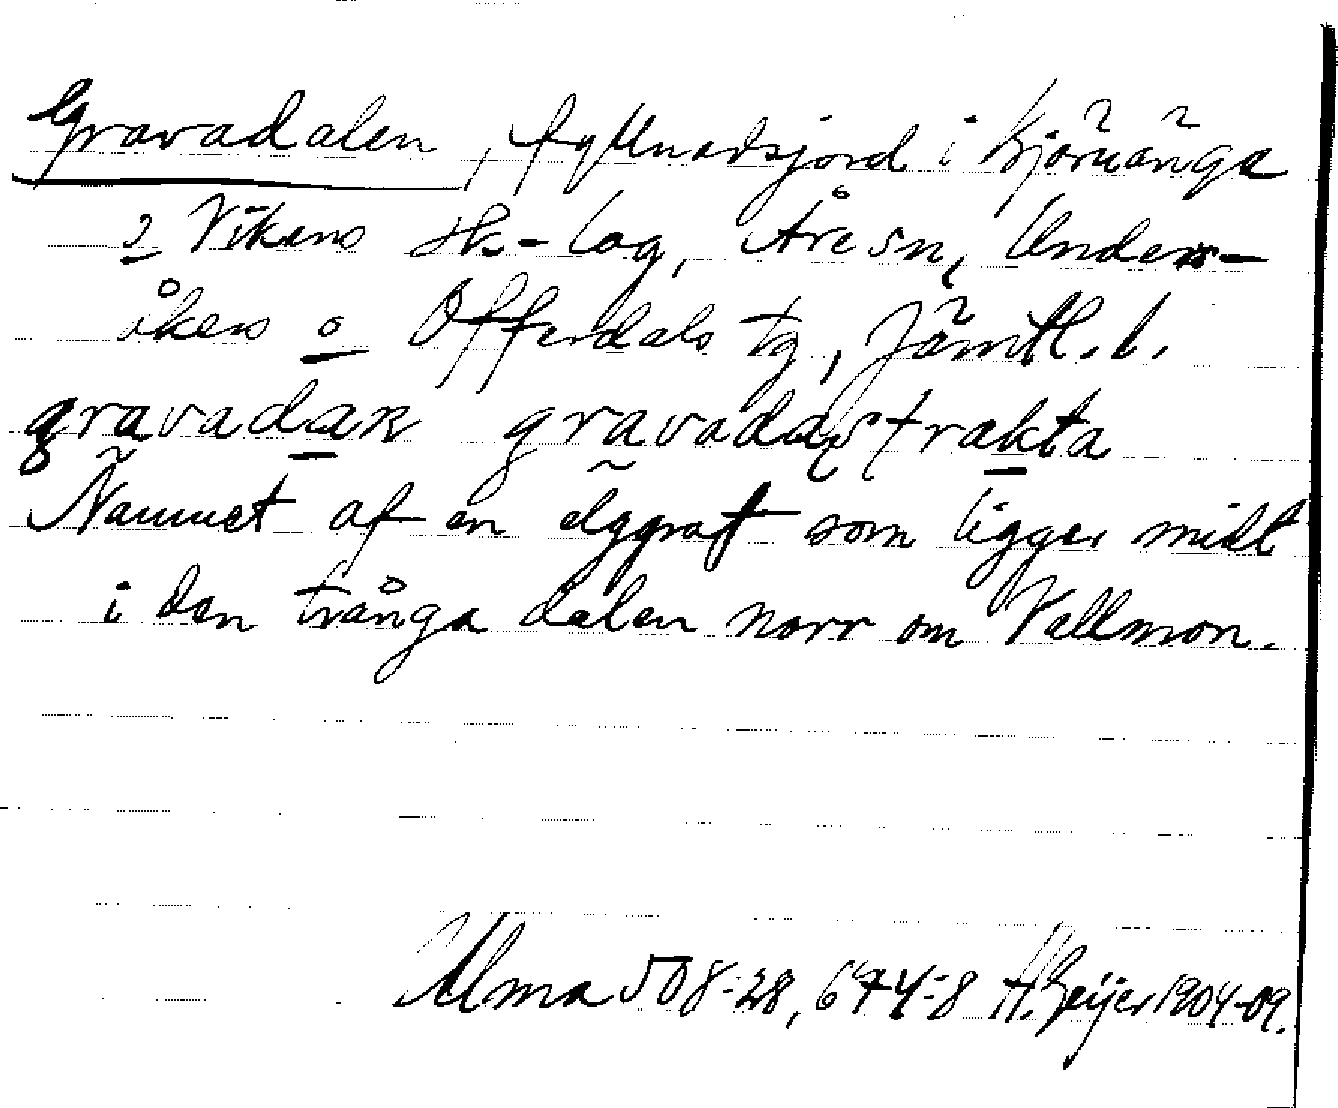 Gravadalen, fyllnadsjord i Kjörvänge
o Vikens sk-lag, Åre sn, Unders-
åkers o Offerdals tg, Jämtl. l.
gravadaɴ gravadaʂtrakta
Namnet af en älggraf som ligger midt
i den trånga dalen norr om Vallmon.
Ulma 508:28, 674:8 H. Geijer 1904-09.